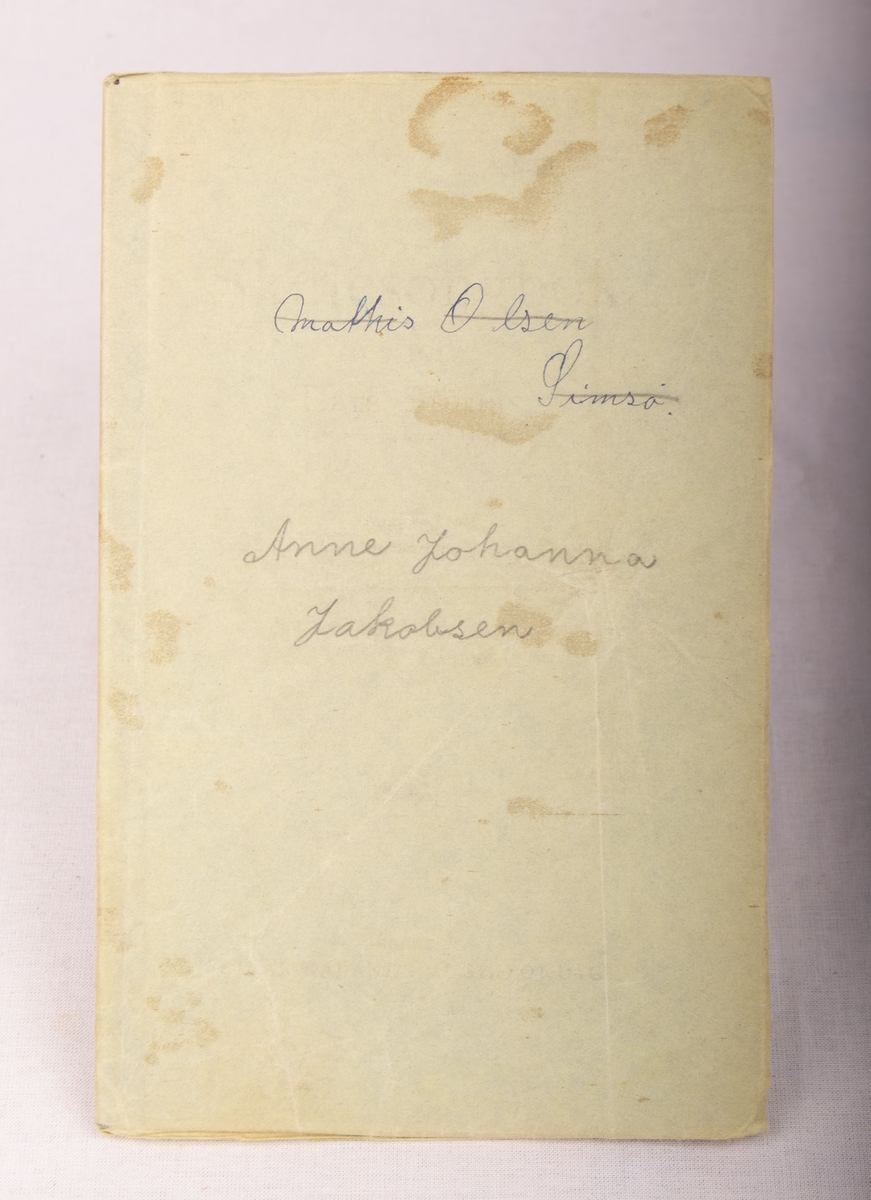 Mathis Olsen
Simsø.
Anne Johanna
Jakobsen